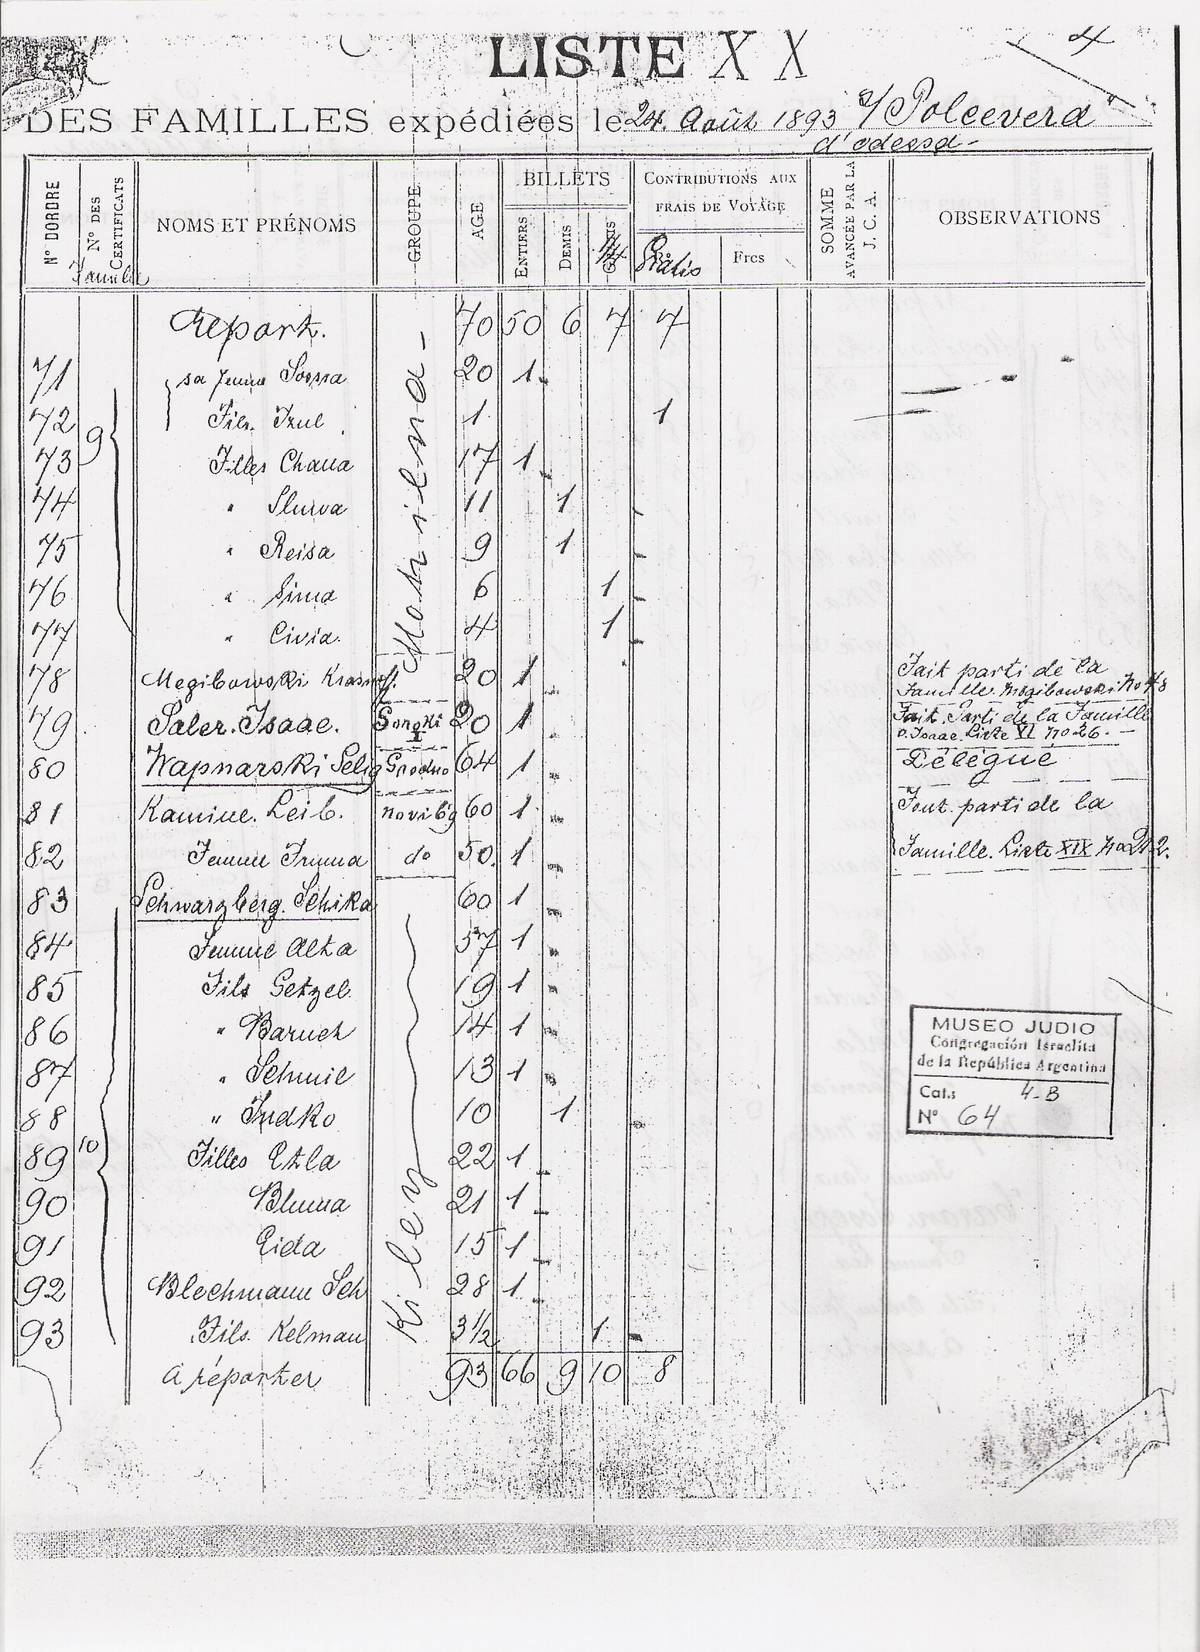 4
LISTE XX
DES FAMILLES expédiées le 24 Août 1893 s/ "Polcevera"
d'odessa-
N° DORDRE
N° DES CERTIFICATS
Famille
NOMS ET PRÉNOMS
GROUPE
AGE
BILLETS
ENTIERS
DEMIS
1/4
CONTRIBUTIONS AUX FRAIS DE VOYAGE
Gratis
Frcs
SOMME AVANCÉE PAR LA J. C. A.
OBSERVATIONS
Report. 70 50 6 7 7
71 sa femme Sossia 20 1
72 Fils. Izul 1 1
9
73 Filles Chana 17 1
74 " Sluwa 11 1
75 " Reisa 9 1
76 " Sima 6 1
77 " Civia. 4 1
78 Megibowski 20 1 Fait parti de la
Famille. Megibowski No 48
79 Saler. Isaac. Sonoki I 20 1 Fait. Parti de la Famille
o. Isaac Liste XI No 26. -
80 Wapnarski Selig Grodno 64 1 Délégué
81 Kamine. Leib. novibg 60 1 Font parti de la
82 Femme do 50. 1 Famille. Liste XIX No 212.
83 Schwarzberg. Schika 60 1
84 Femme Alta 57 1
85 Fils Getzel 19 1
86 " Baruch 14 1
87 " Schmil 13 1
88 " Judko 10 1
10
89 Filles Etzla 22 1
90 Bluma 21 1
91 Gida 15 1
92 Blechmann Sch 28 1
93 Fils. Kelman 3 1/2 1
Kiley
A réporter 93 66 9 10 8
MUSEO JUDIO
Congregación Israelita
de la República Argentina
Cat.: 4-B
N° 64